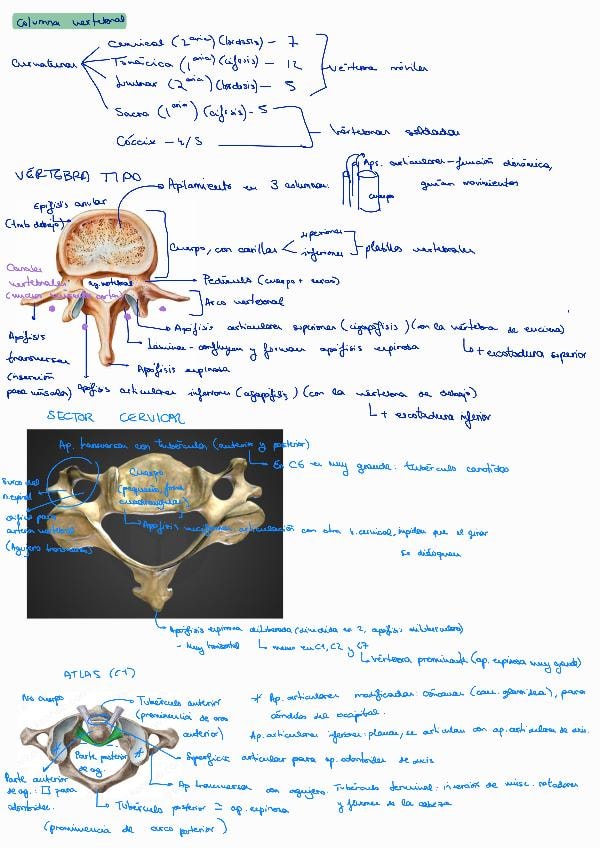 Columna vertebral
Curvaturas
Cervical (2aria) (lordosis) - 7
Torácica (1aria) (cifosis) - 12
Lumbar (2aria) (lordosis) - 5
vértebras móviles
Sacra (1aria) (cifosis) - 5
Cóccix - 4/5
vértebras soldadas
VÉRTEBRA TIPO
Apilamiento en 3 columnas:
cuerpo
Aps. articulares - función dinámica,
guían movimientos
Epífisis anular
(tmb debajo)
Cuerpo, con carillas
superiores
inferiores
platillos vertebrales
Canales
vertebrales
Ag. vertebral
Pedículo (cuerpo + arco)
Arco vertebral
Apófisis articulares superiores (cigapófisis) (con la vértebra de encima)
+ escotadura superior
Láminas - confluyen y forman apófisis espinosa
Apófisis espinosa
Apófisis
transversas
(inserción
para músculos)
Apófisis articulares inferiores (agapófisis) (con la vértebra de debajo)
+ escotadura inferior
SECTOR CERVICAL
Ap. transversas con tubérculos (anterior y posterior)
En C6 es muy grande: tubérculo carotídeo
Cuerpo
(pequeño, forma
cuadrangular)
Surco del
n. espinal
orificio para
arteria vertebral
(Agujero transverso)
Apófisis unciformes articulación con otra v. cervical, impiden que al girar
se disloquen
Apófisis espinosa bituberculada (dividida en 2, apófisis bituberculosa)
- Muy horizontal
menos en C1, C2 y C7
Vértebra prominente (ap. espinosa muy grande)
ATLAS (C1)
No cuerpo
Tubérculo anterior
(prominencia de arco
anterior)
* Ap. articulares modificadas: cóncavas (cav. glenoidea), para
cóndilos del occipital.
Ap. articulares inferiores: planas, se articulan con ap. articulares de axis.
Parte posterior
de ag.
Superficie articular para ap. odontoides de axis
Parte anterior
de ag.: para
odontoides.
Ap transversas con agujero. Tubérculo terminal: inserción de músc. rotadores
y flexores de la cabeza
Tubérculo posterior ≃ ap. espinosa
(prominencia de arco posterior)